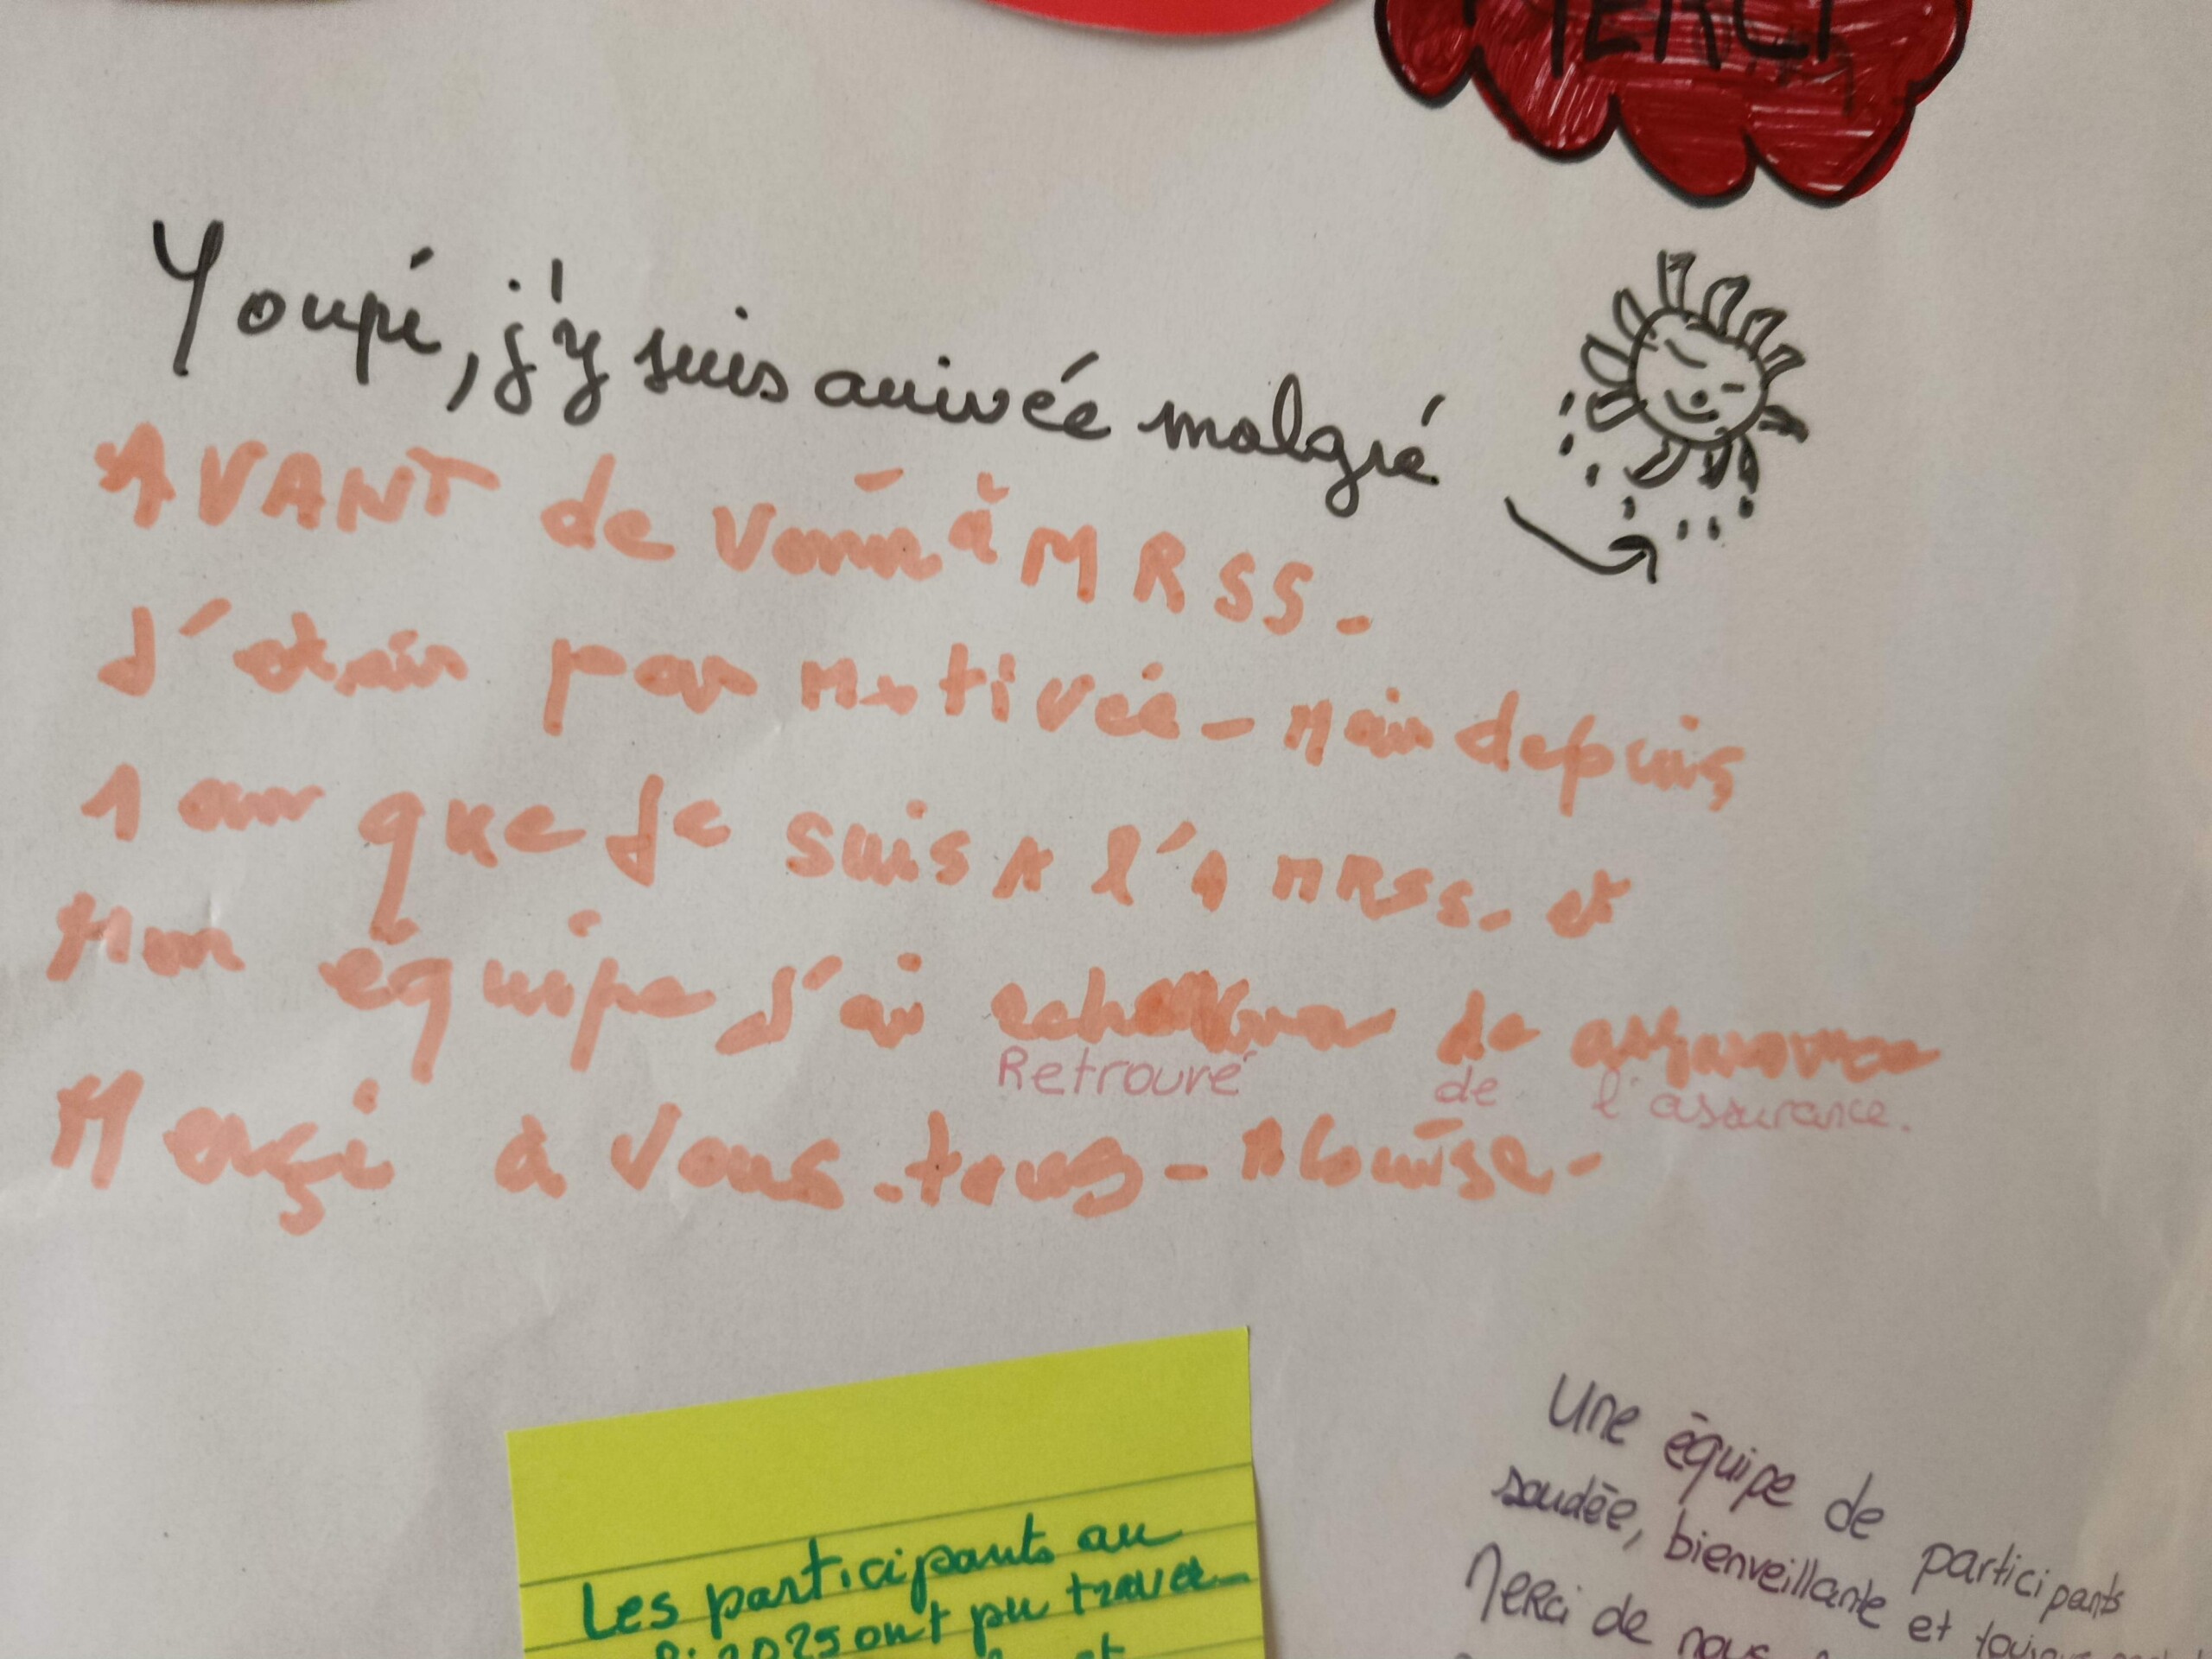 MERCI
Youpi, j'y suis arrivée malgré
AVANT de venir à MRSS-
J'étais pas Motivée - Mais depuis
1 ans que Je suis A l'A MRSS. et
Mon équipe J'ai de assurance
Retrouvé de l'assurance.
Merçi à Vous.tous - ALouise-
Les participants au
2025 ont pu travai
et
Une équipe de participants
soudée, bienveillante et toujours
Merci de nous